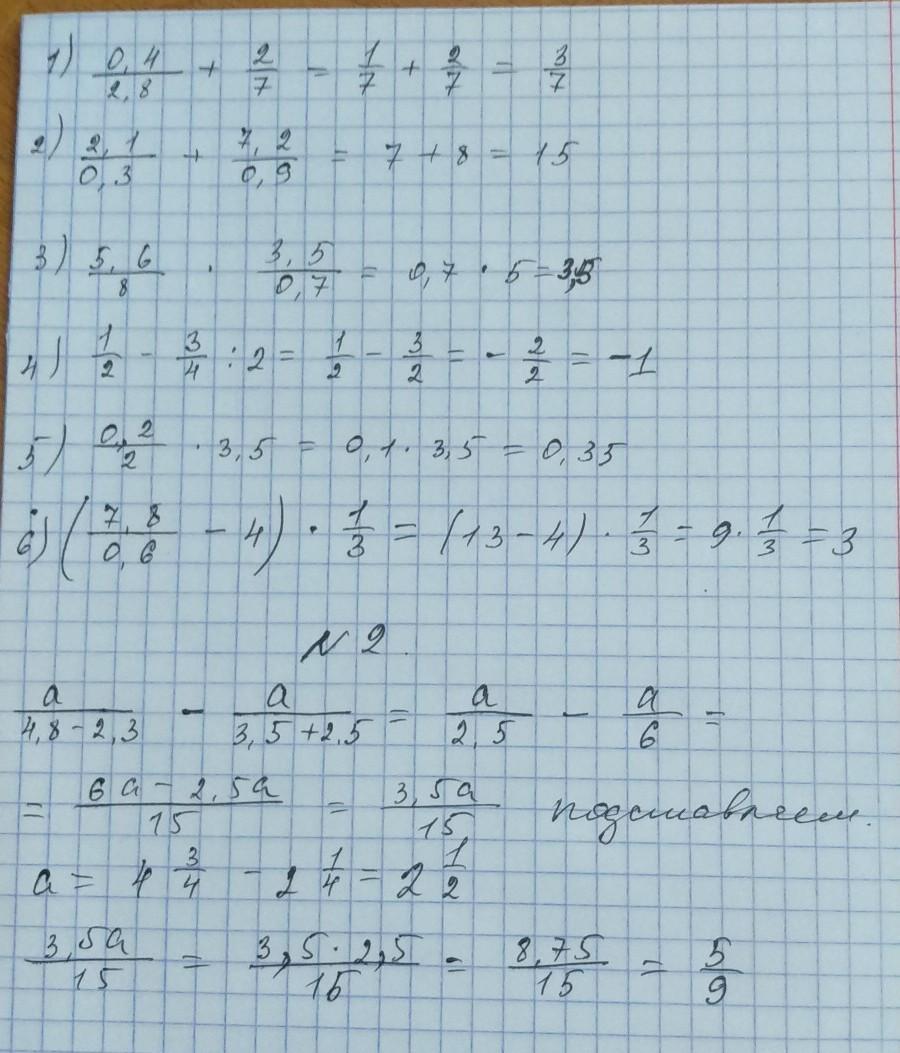 1) 0,4/2,8 + 2/7 = 1/7 + 2/7 = 3/7
2) 2,1/0,3 + 7,2/0,9 = 7 + 8 = 15
3) 5,6/8 · 3,5/0,7 = 0,7 · 5 = 3,5
4) 1/2 - 3/4 : 2 = 1/2 - 3/2 = - 2/2 = -1
5) 0,2/2 · 3,5 = 0,1 · 3,5 = 0,35
6) (7,8/0,6 - 4) · 1/3 = (13 - 4) · 1/3 = 9 · 1/3 = 3
N 2.
a/(4,8 - 2,3) - a/(3,5 + 2,5) = a/2,5 - a/6 =
= (6a - 2,5a)/15 = 3,5a/15 подставляем.
a = 4 3/4 - 2 1/4 = 2 1/2
3,5a/15 = (3,5 · 2,5)/15 = 8,75/15 = 5/9